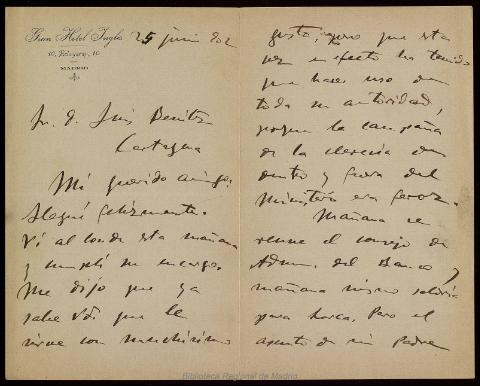 Gran Hotel Inglés
10, Echegaray, 10
MADRID
25 junio 902
Sr. D. Luis Benítez
Cartagena
Mi querido amigo:
Llegué felizmente.
Ví al Conde esta mañana
y cumplí su encargo.
Me dijo que ya
sabe Vd. que le
sirve con muchísimo
gusto, pero que esta
vez en efecto ha tenido
que hacer uso de
toda su autoridad,
porque la campaña
de la
dentro y fuera del
Ministerio era feroz.
Mañana se
reune el consejo de
Admon. del Banco y
mañana mismo saldría
para Pero el
asunto de mi Padre
Biblioteca Regional de Madrid